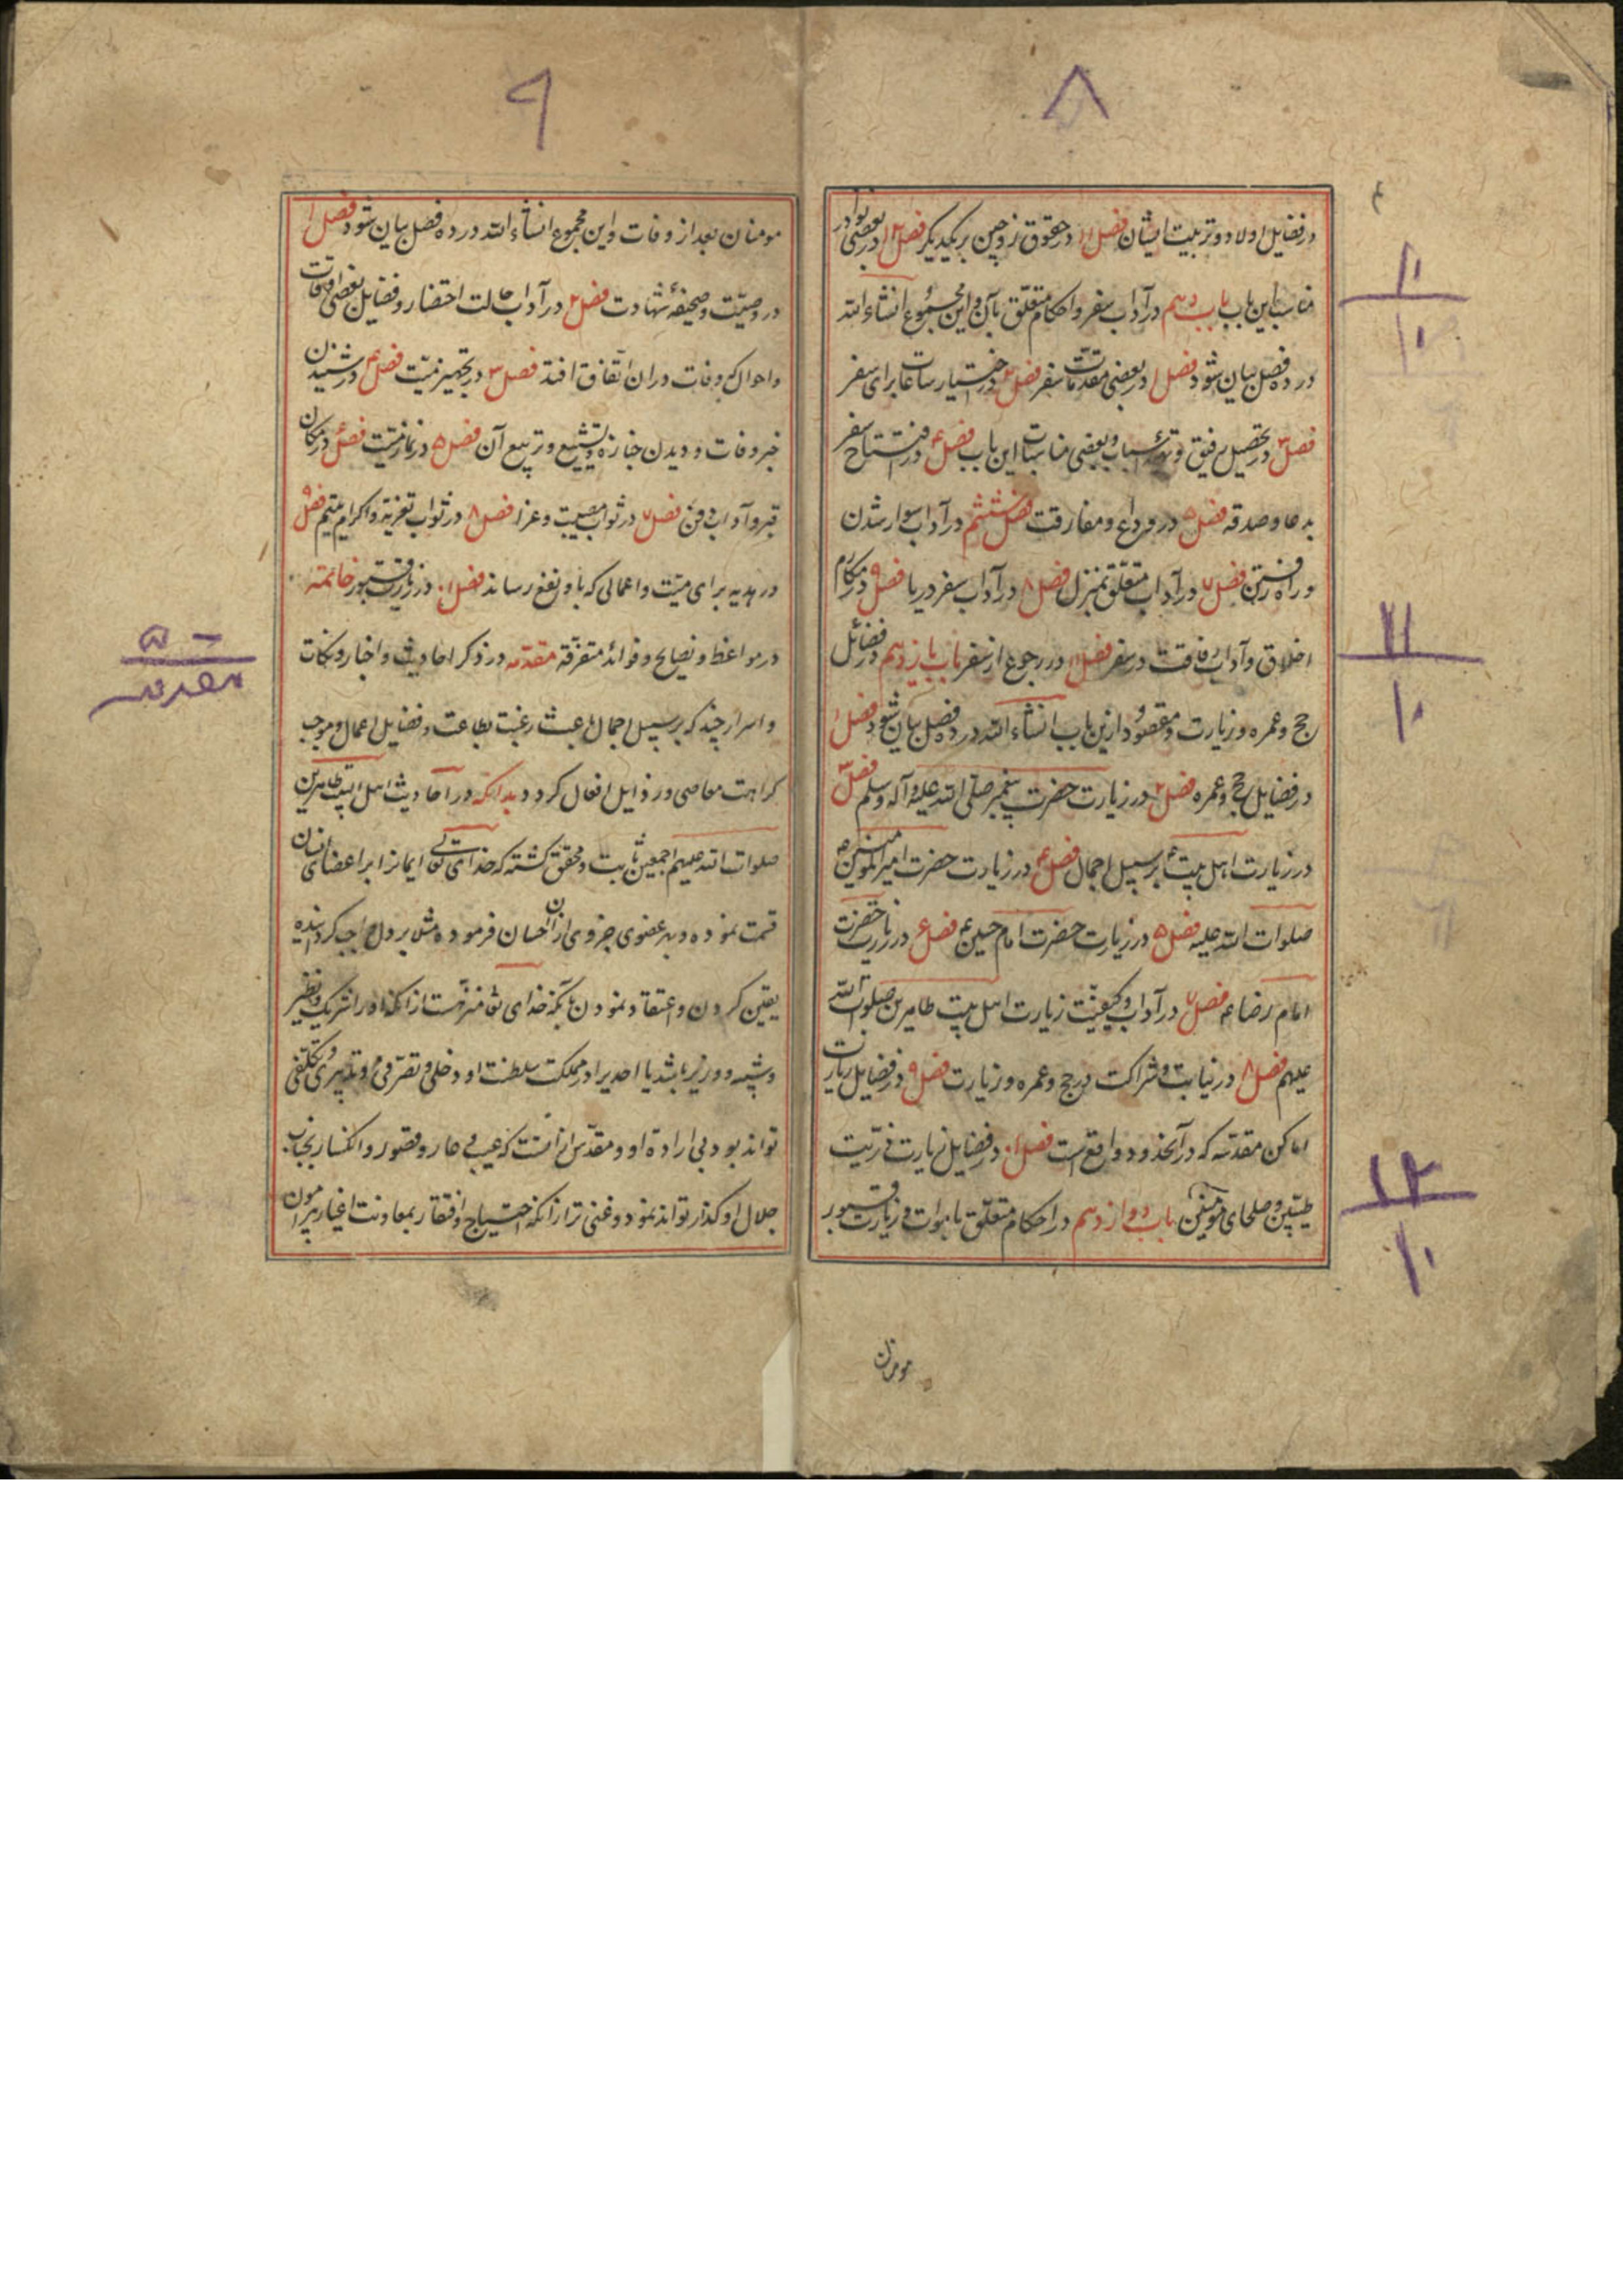 ۸
در فضایل اولاد و تربیت ایشان فصل ۱۱ در حقوق زوجین بر یکدیگر فصل ۱۲ در بعضی نوادر
مناسب این باب باب دهم در آداب سفر و احکام متعلق بآن و این مجموع انشاء الله
در ده فصل بیان شود فصل ۱ در بعضی مقدمات سفر فصل ۲ در اختیار ساعات برای سفر
فصل ۳ در تحصیل رفیق و تهیهٔ اسباب و بعضی مناسبات این باب فصل ۴ در افتتاح سفر
بدعا و صدقه فصل ۵ در وداع و مفارقت فصل ششم در آداب سوار شدن
و راه رفتن فصل ۷ در آداب متعلق بمنزل فصل ۸ در آداب سفر دریا فصل ۹ در مکارم
اخلاق و آداب رفاقت در سفر فصل ۱۰ در رجوع از سفر باب یازدهم در فضائل
حج و عمره و زیارت و مقصود ازین باب انشاء الله در ده فصل بیان شود فصل ۱
در فضایل حج و عمره فصل ۲ در زیارت حضرت پیغمبر صلی الله علیه و آله و سلم فصل ۳
در زیارت اهل بیت ع بر سبیل اجمال فصل ۴ در زیارت حضرت امیر المؤمنین
صلوات الله علیه فصل ۵ در زیارت حضرت امام حسین ع فصل ۶ در زیارت حضرت
امام رضا ع فصل ۷ در آداب و کیفیت زیارت اهل بیت طاهرین صلوات الله
علیهم فصل ۸ در نیابت و شراکت در حج و عمره و زیارت فصل ۹ در فضایل زیارات
اماکن مقدسه که در آنحدود واقع است فصل ۱۰ در فضایل زیارت ذریت
طیبین و صلحای مؤمنین باب دوازدهم در احکام متعلق باموات و زیارت قبور
مومنان
۱۰
۱۰
۱۱
۱۰
۱۲
۱۰
۹
مومنان بعد از وفات و این مجموع انشاء الله در ده فصل بیان شود فصل ۱
در وصیت و صحیفهٔ شهادت فصل ۲ در آداب حالت احتضار و فضایل بعضی اوقات
و احوال که وفات در ان اتفاق افتد فصل ۳ در تجهیز میت فصل ۴ در شنیدن
خبر وفات و دیدن جنازه و تشییع و تربیع آن فصل ۵ در نماز میت فصل ۶ در مکان
قبر و آداب دفن فصل ۷ در ثواب مصیبت و عزا فصل ۸ در ثواب تعزیه و اکرام یتیم فصل ۹
در هدیه برای میت و اعمالی که باو نفع رساند فصل ۱۰ در زیارت قبور خاتمه
در مواعظ و نصایح و فوائد متفرقه مقدمه در ذکر احادیث و اخبار و نکات
و اسرار چند که بر سبیل اجمال باعث رغبت بطاعت و فضایل اعمال و موجب
کراهت معاصی و رذایل افعال کردد بدانکه در احادیث اهل البیت طاهرین
صلوات الله علیهم اجمعین ثابت و محقق گشته که خدای تعالی ایمانرا بر اعضای انسان
قسمت نموده و بهر عضوی جزوی از ان احسان فرموده مثلا بر دل واجب کردانیده
یقین کردن و اعتقاد نمودن بآنکه خدای تعا منزهست از آنکه او را شریک و نظیر
و شبیه و وزیر باشد یا احدیرا در مملکت سلطنت او دخلی و تصرفی و تدبیری و تکلفی
تواند بود بی ارادهٔ او و مقدس از آنست که عیب و عار و قصور و انکسار بجناب
جلال او کذار تواند نمود و غنی تر از آنکه احتیاج و افتقار بمعاونت اغیار پیرامون
مقدمه